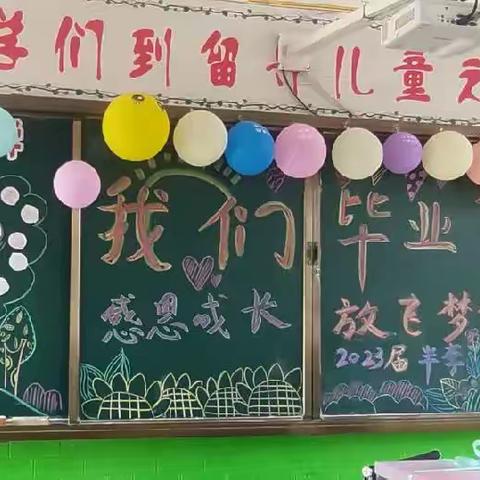 学们到留守儿童
我们毕业
感恩成长 放飞梦
2023届